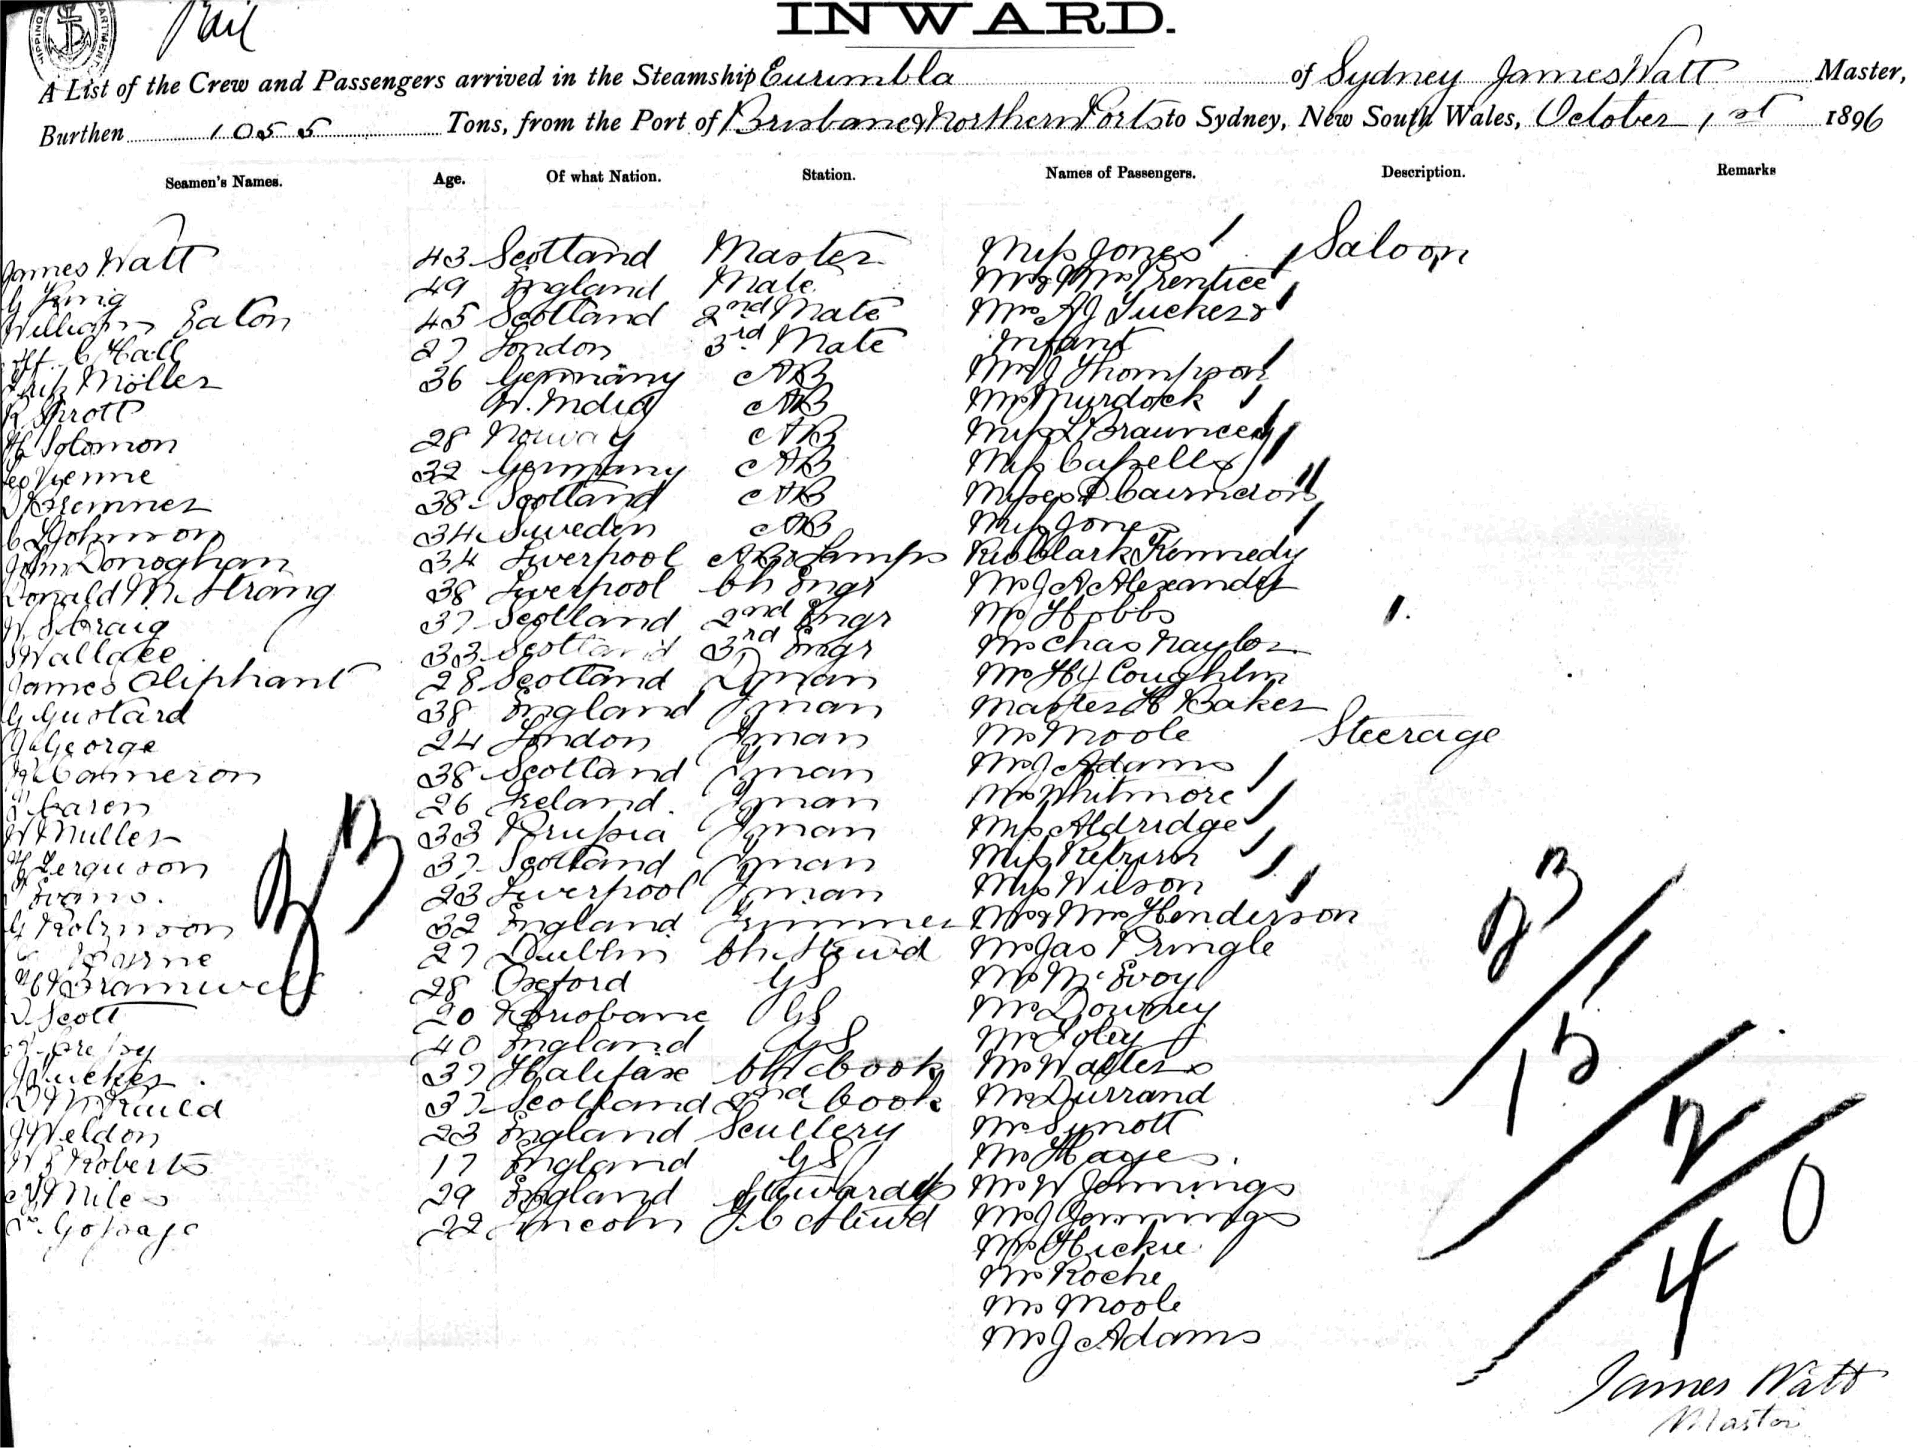 Rail
INWARD.
A List of the Crew and Passengers arrived in the Steamship Eurimbla of Sydney James Watt Master,
Burthen 1055 Tons, from the Port of Brisbane & Northern Ports to Sydney, New South Wales, October 1st 1896
Seamen's Names. Age. Of what Nation. Station. Names of Passengers. Description. Remarks
James Watt 43 Scotland Master Miss Jones Saloon
49 England Mate Mr & Mrs Prentice
William Eaton 45 Scotland 2nd Mate Mrs AJ Tucker &
Hall 27 London 3rd Mate Infant
Fritz Möller 36 Germany AB Mrs J Thompson
R Sprott W. India AB Mrs Murdock
H Solomon 28 Norway AB Miss
Leo Vienne 32 Germany AB Miss
D Kremner 38 Scotland AB Misses
C Johnson 34 Sweden AB Miss Jones
John Donoghan 34 Liverpool AB & Lamps Clark Kennedy
Donald McStrang 38 Liverpool Ch Engr Mr J A Alexander
W S Craig 37 Scotland 2nd Engr Mr Hobbs
Wallace 33 Scotland 3rd Engr Mr Chas Naylor
James Oliphant 28 Scotland Dman Mr HJ Coughlin
G Gustard 38 England Fman Master H Baker
J George 24 London Fman Mr Moole Steerage
Cameron 38 Scotland Fman Mr J Adams
Caren 26 Ireland Fman Mrs Whitmore
W Muller 33 Prussia Fman Miss Aldridge
H Ferguson 37 Scotland Fman Miss
Evans. 23 Liverpool Fman Miss Wilson
G Robinson 32 England Trimmer Mr & Mrs Henderson
27 Dublin Ch. Stewd Mr Jas Pringle
Bramwell 28 Oxford GS Mr McEvoy
D. Scott 20 Brisbane GS Mr Downey
40 England GS Mr Foley
J Tucker 37 Halifax Ch Cook Mr Walters
37 Scotland 2nd Cook Mr Durrand
J Weldon 23 England Scullery Mr Synott
W E Roberts 17 England GS Mr Hayes.
Miles 29 England Stewardess Mr W Jennings
Gossage 22 Lincoln F.C Stewd Mr J Jennings
Mr Hickie
Mr Roche
Mr Moole
Mr J Adams
33
23
15
2
40
James Watt
Master